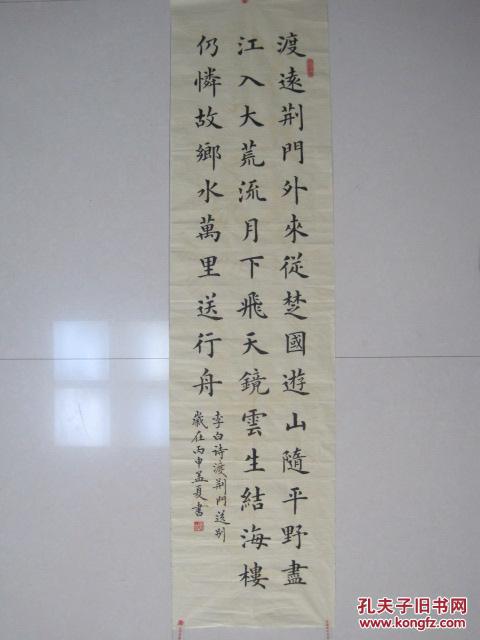 渡遠荆門外來從楚國遊山隨平野盡
江入大荒流月下飛天鏡雲生結海樓
仍憐故鄉水萬里送行舟
李白诗渡荆門送别
歲在丙申孟夏書
孔夫子旧书网
www.kongfz.com